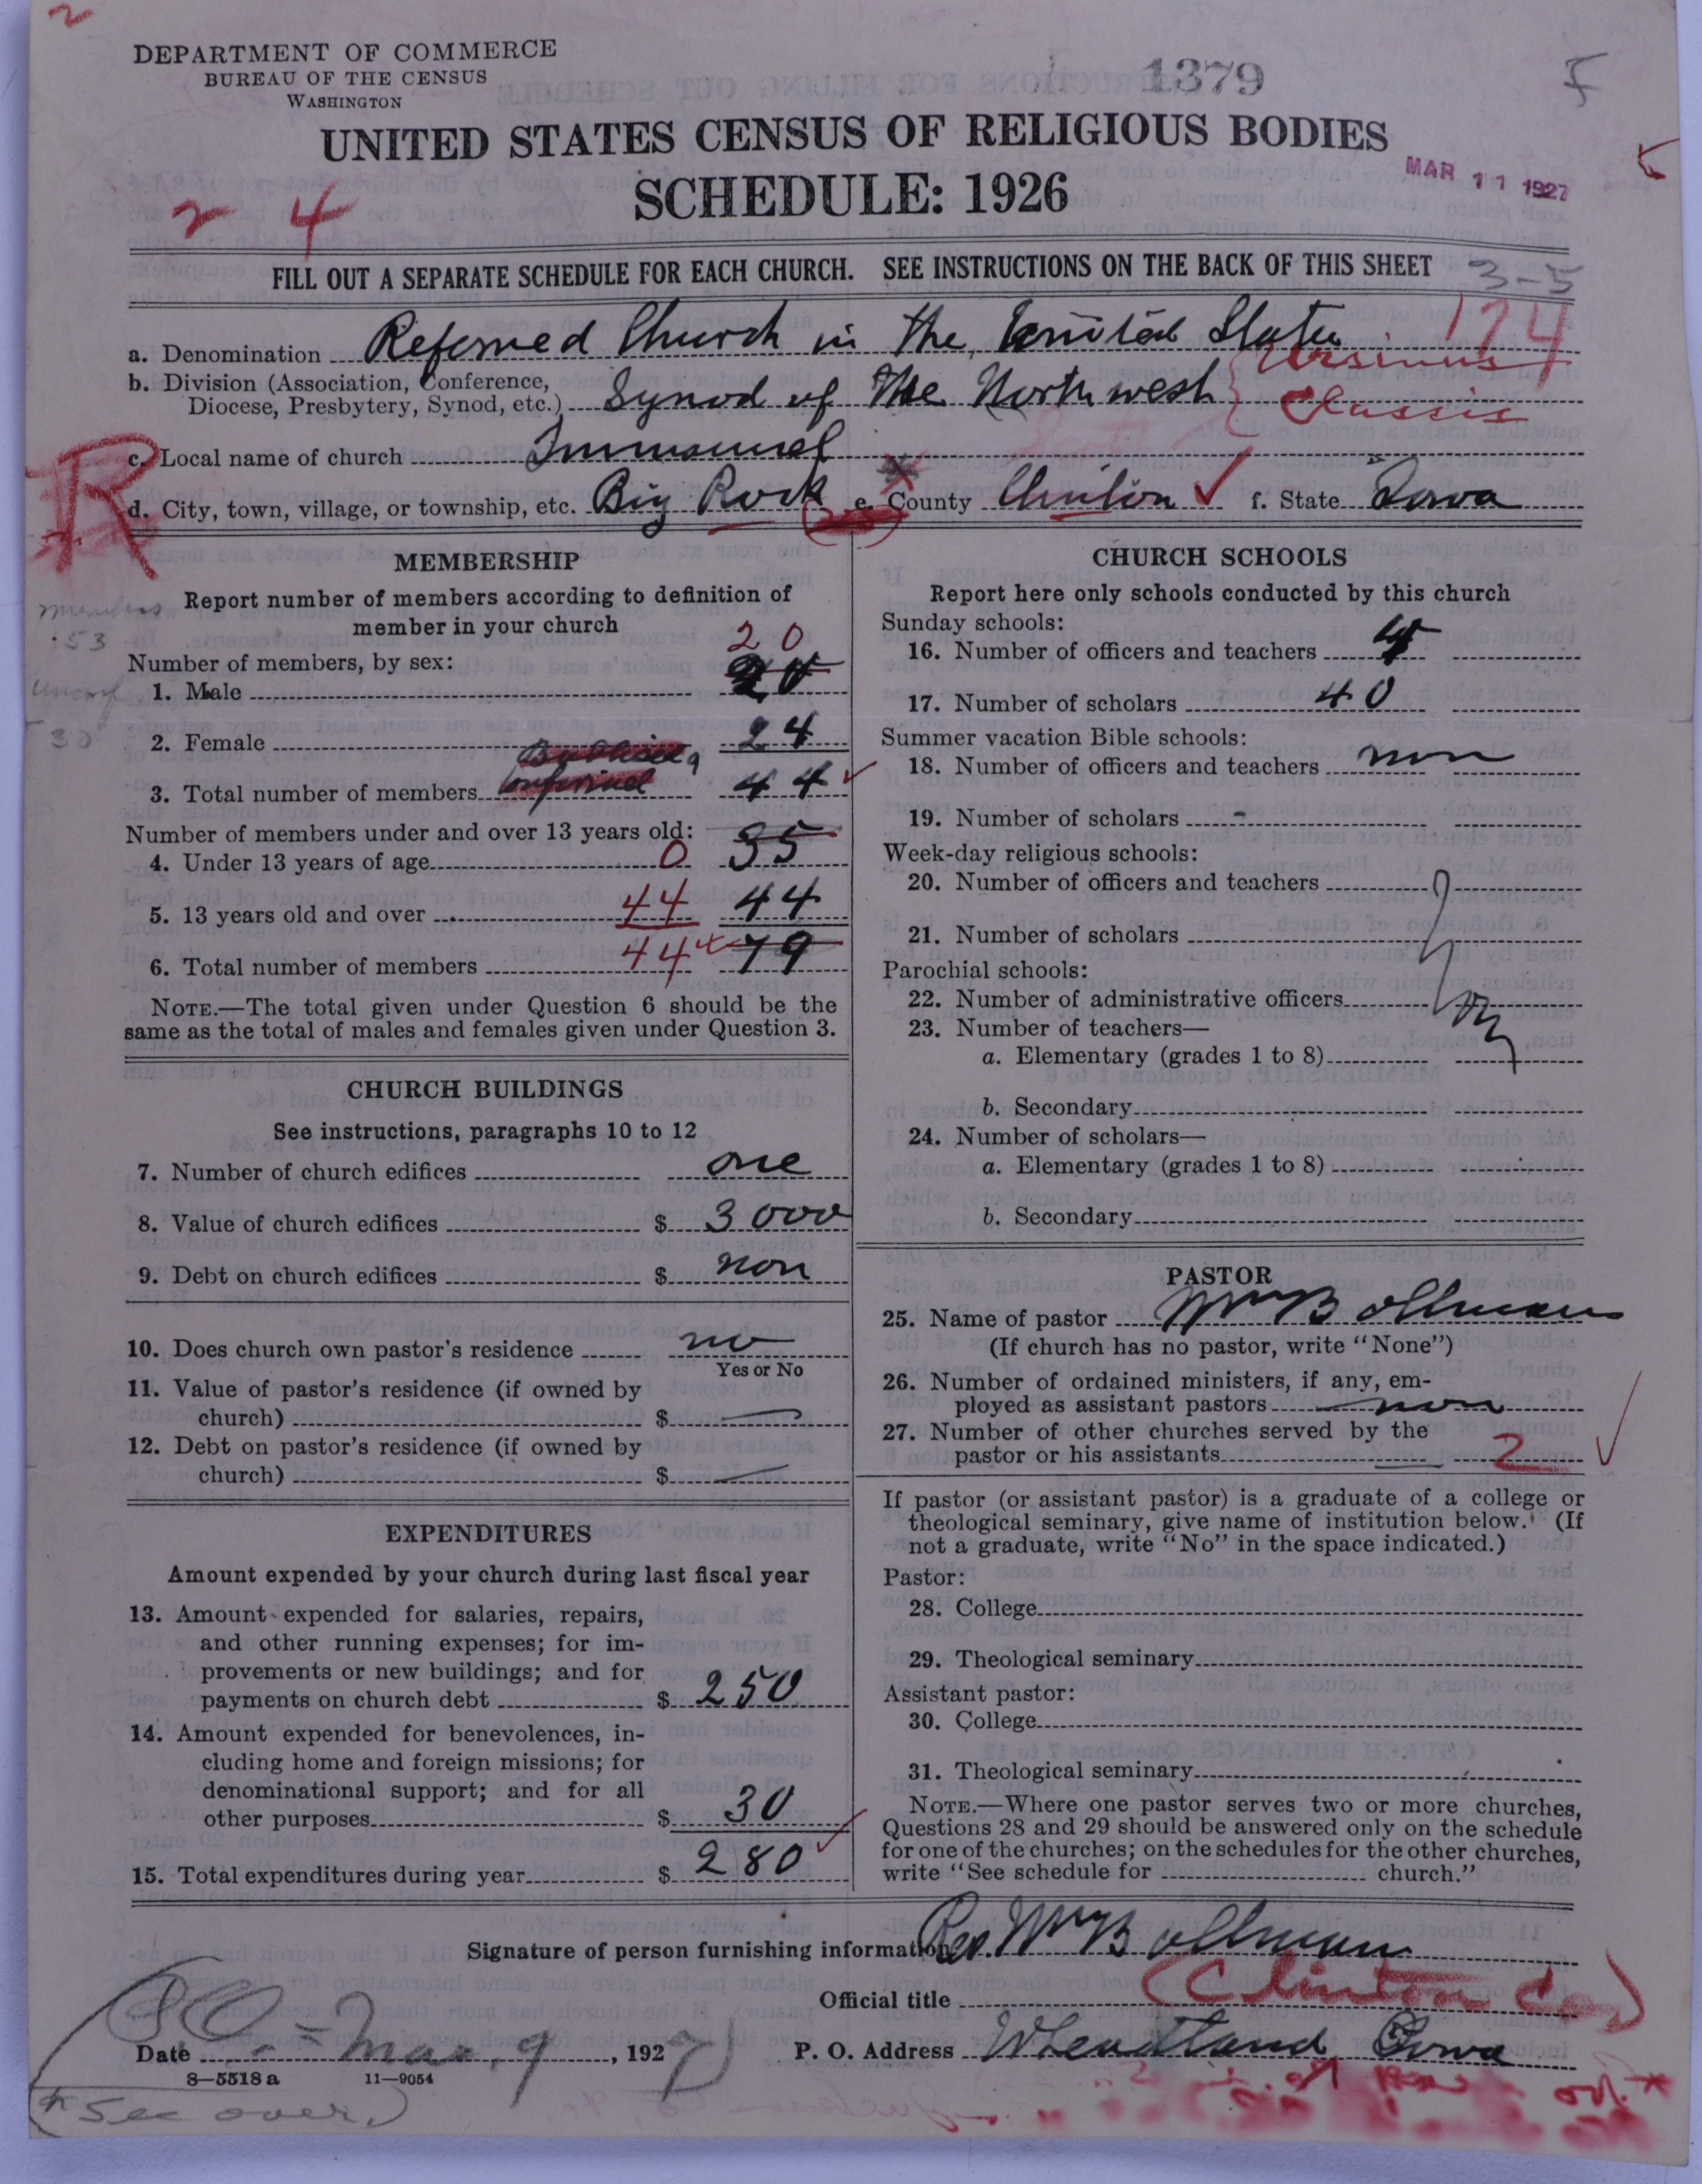 2
DEPARTMENT OF COMMERCE
BUREAU OF THE CENSUS
WASHINGTON
1379
UNITED STATES CENSUS OF RELIGIOUS BODIES
MAR 11 1927
SCHEDULE: 1926
2 4
FILL OUT A SEPARATE SCHEDULE FOR EACH CHURCH. SEE INSTRUCTIONS ON THE BACK OF THIS SHEET
3-5
174
a. Denomination Reformed Church in the United States
b. Division (Association, Conference, Diocese, Presbytery, Synod, etc.) Synod of the Northwest { Ursinus Classis
c. Local name of church Immanuel
R
d. City, town, village, or township, etc. Big Rock e. County Clinton ✓ f. State Iowa
MEMBERSHIP
Report number of members according to definition of
member in your church
members
53
Number of members, by sex:
20
1. Male 20
30
2. Female 24
Baptised
Confirmed
3. Total number of members 44 ✓
Number of members under and over 13 years old:
4. Under 13 years of age 0 35
5. 13 years old and over 44 44
6. Total number of members 44 79
NOTE.—The total given under Question 6 should be the
same as the total of males and females given under Question 3.
CHURCH BUILDINGS
See instructions, paragraphs 10 to 12
7. Number of church edifices one
8. Value of church edifices $ 3000
9. Debt on church edifices $ non
10. Does church own pastor's residence no
Yes or No
11. Value of pastor's residence (if owned by
church) $ —
12. Debt on pastor's residence (if owned by
church) $ —
EXPENDITURES
Amount expended by your church during last fiscal year
13. Amount expended for salaries, repairs,
and other running expenses; for im-
provements or new buildings; and for
payments on church debt $ 250
14. Amount expended for benevolences, in-
cluding home and foreign missions; for
denominational support; and for all
other purposes $ 30
15. Total expenditures during year $ 280 ✓
CHURCH SCHOOLS
Report here only schools conducted by this church
Sunday schools:
16. Number of officers and teachers
17. Number of scholars 40
Summer vacation Bible schools:
18. Number of officers and teachers non
19. Number of scholars -
Week-day religious schools:
20. Number of officers and teachers
21. Number of scholars
Parochial schools:
22. Number of administrative officers
23. Number of teachers—
a. Elementary (grades 1 to 8)
b. Secondary
24. Number of scholars—
a. Elementary (grades 1 to 8)
b. Secondary
PASTOR
25. Name of pastor Wm Bollman
(If church has no pastor, write "None")
26. Number of ordained ministers, if any, em-
ployed as assistant pastors non
27. Number of other churches served by the
pastor or his assistants 2 ✓
If pastor (or assistant pastor) is a graduate of a college or
theological seminary, give name of institution below. (If
not a graduate, write "No" in the space indicated.)
Pastor:
28. College
29. Theological seminary
Assistant pastor:
30. College
31. Theological seminary
NOTE.—Where one pastor serves two or more churches,
Questions 28 and 29 should be answered only on the schedule
for one of the churches; on the schedules for the other churches,
write "See schedule for church."
Signature of person furnishing information Rev. Wm Bollman
Official title (Clinton Co.)
Date Mar. 9, 1927 P. O. Address Wheatland Iowa
8—5518a 11—9054
* See over.